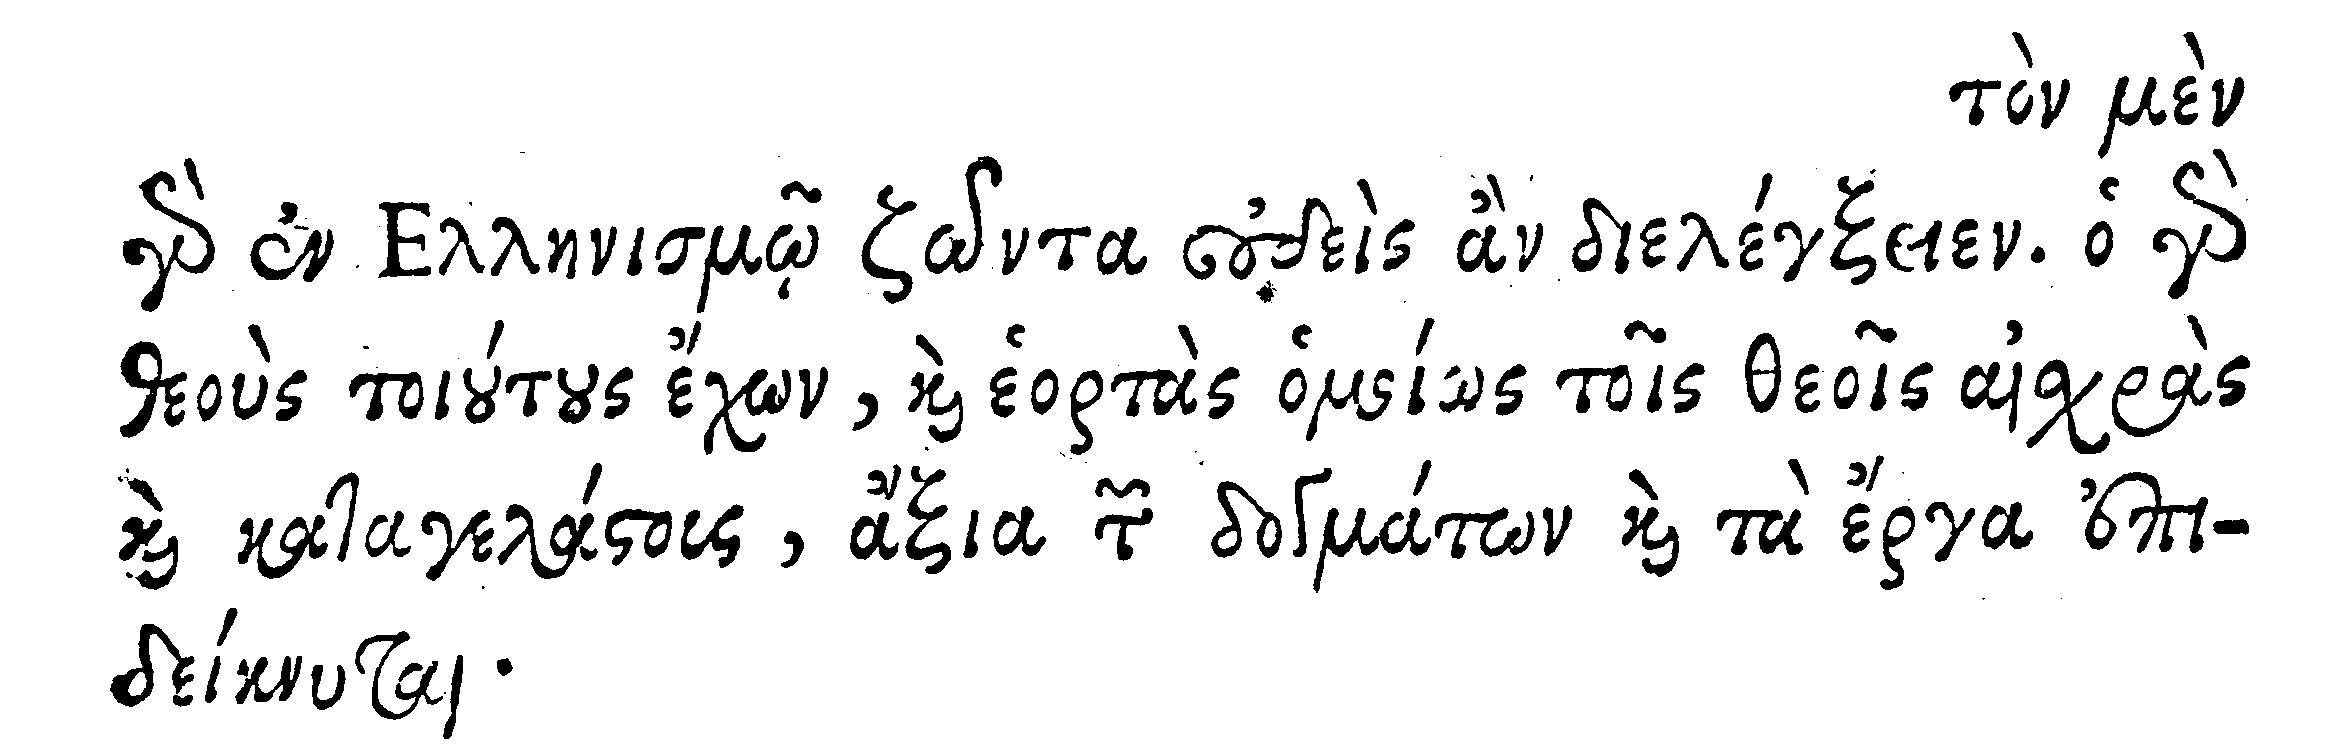 τὸν μὲν
γὰρ ἐν Ελληνισμῷ ζῶντα οὐδεὶς ἂν διελέγξειεν. ὁ γὰρ
θεοὺς τοιούτους ἔχων, καὶ ἑορτὰς ὁμοίως τοῖς θεοῖς αἰσχρὰς
καὶ καταγελάστοις, ἄξια τῶν δογμάτων καὶ τὰ ἔργα ἐπι-
δείκνυται.